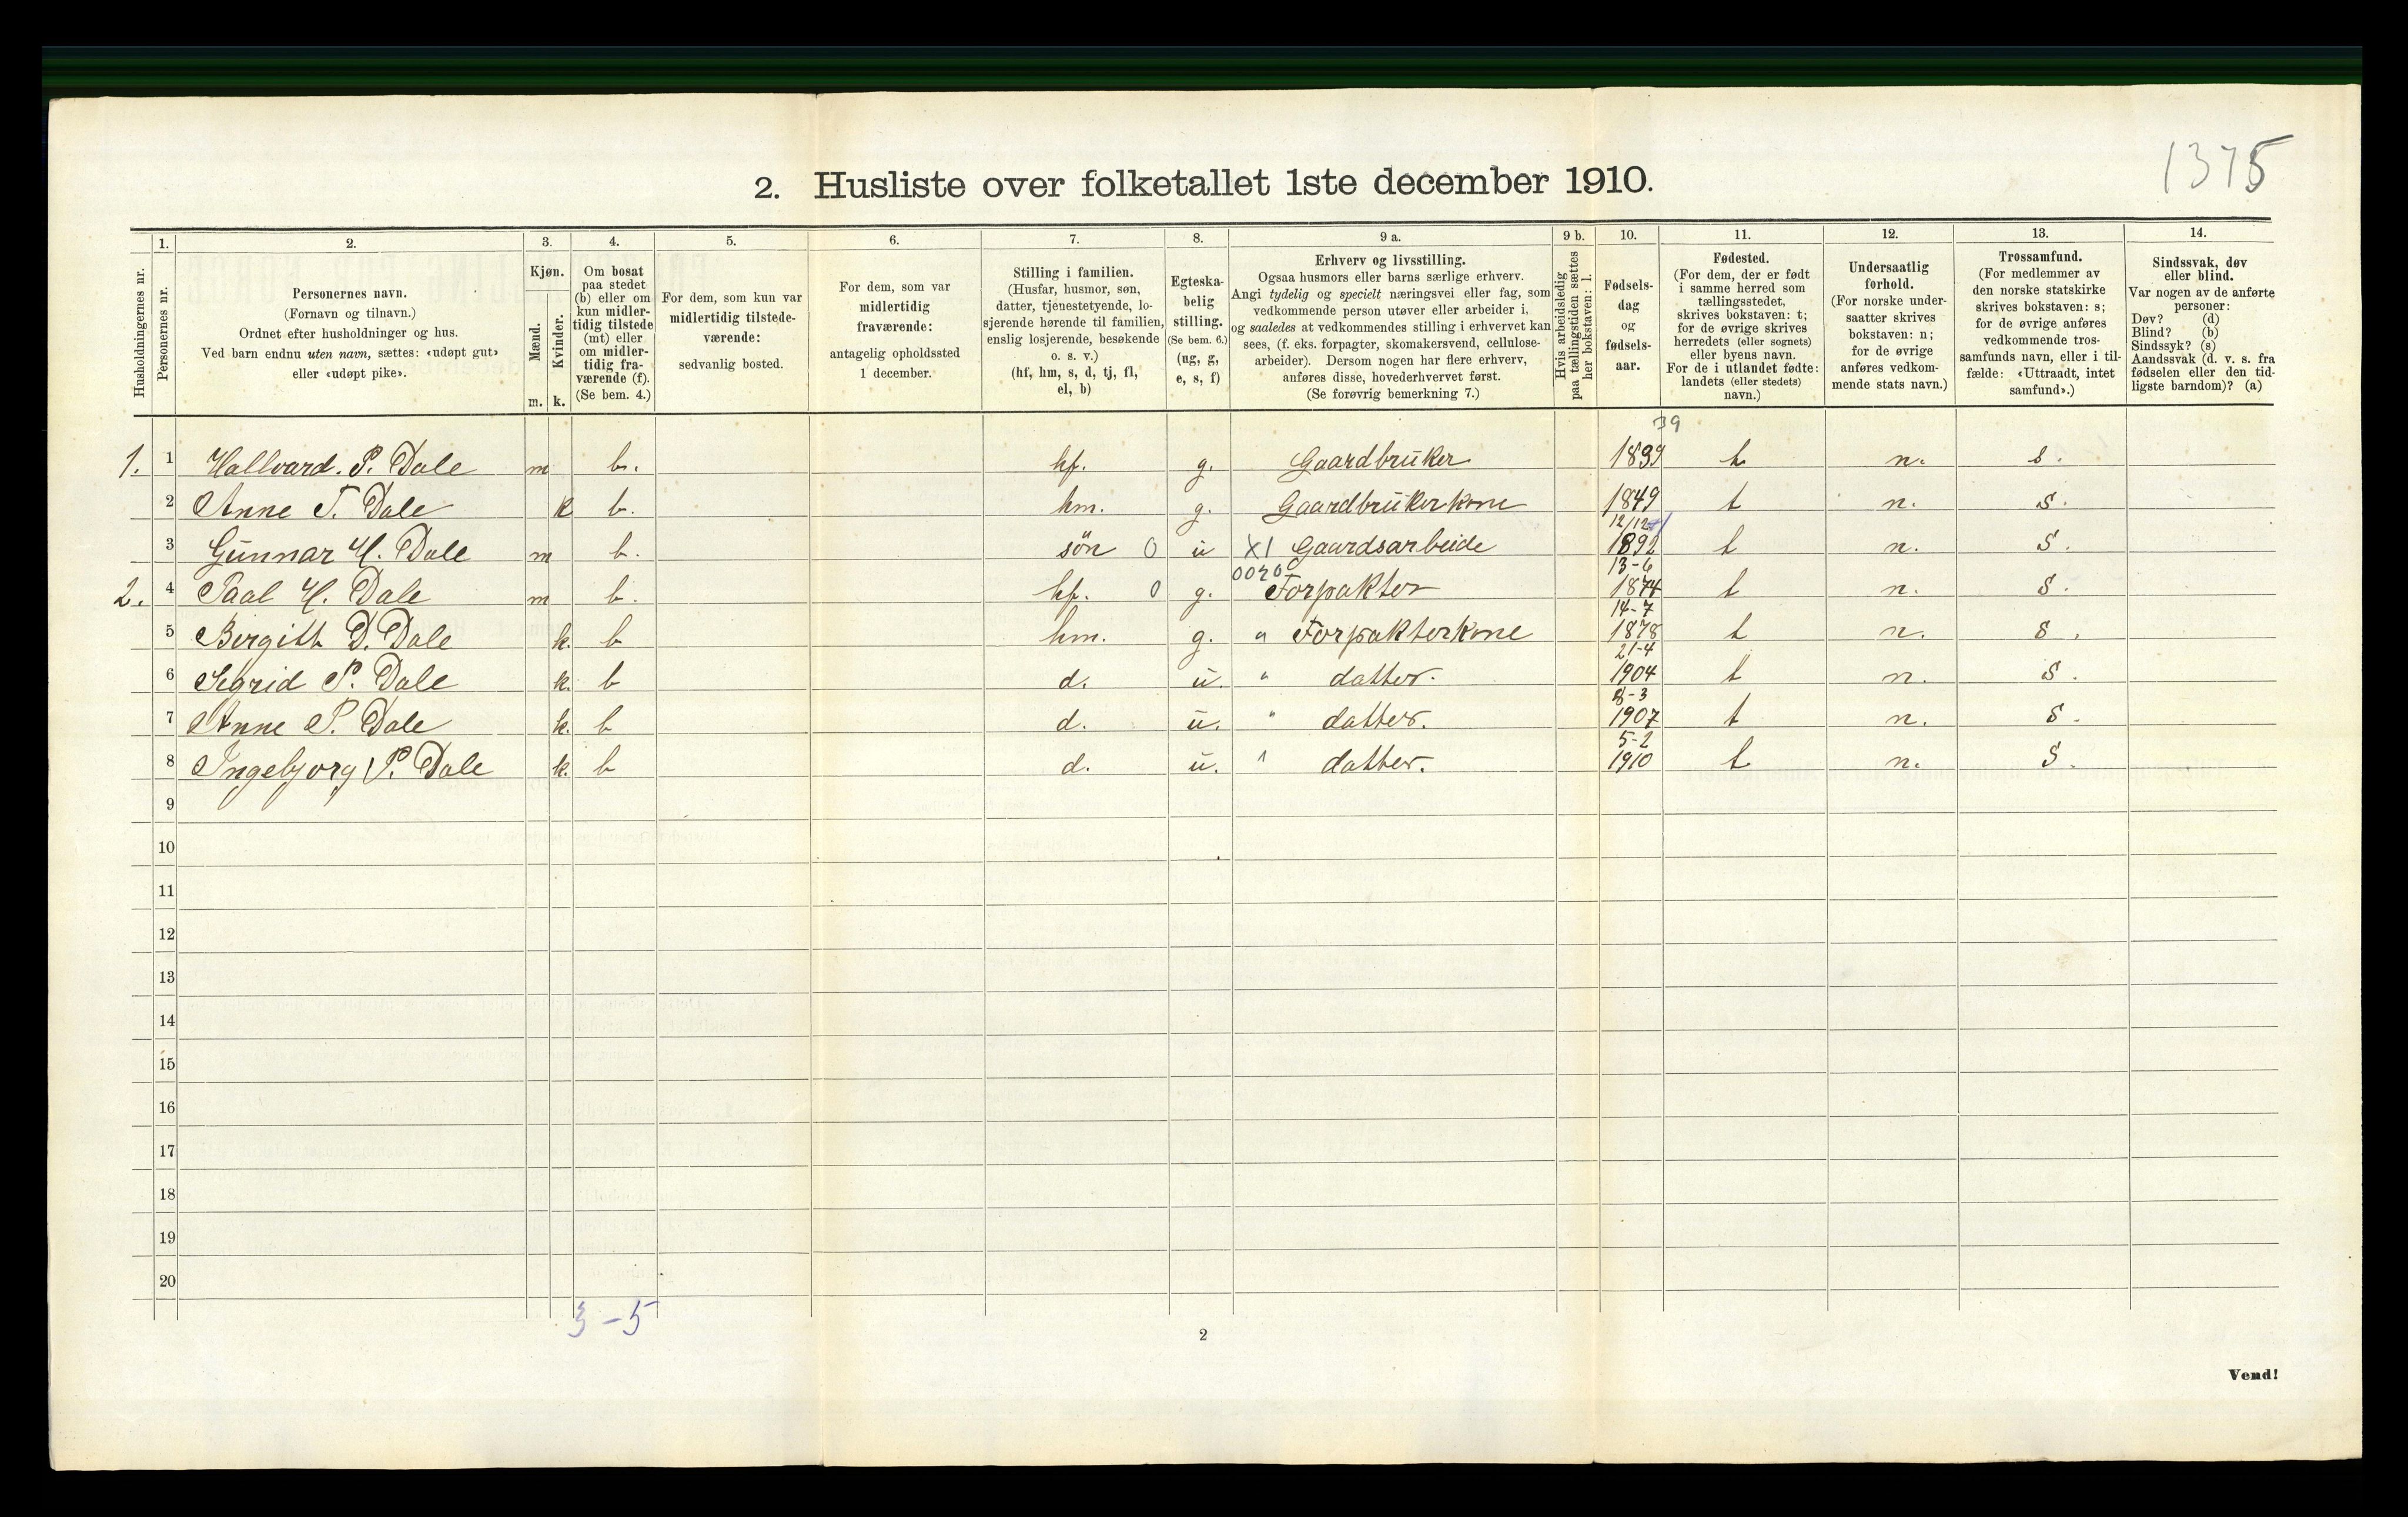 1375
2. Husliste over folketallet 1ste december 1910.
Husholdningernes nr.
1.
Personernes nr.
2.
Personernes navn.
(Fornavn og tilnavn.)
Ordnet efter husholdninger og hus.
Ved barn endnu uten navn, sættes: «udøpt gut»
eller «udøpt pike».
3.
Kjøn.
Mænd.
Kvinder.
m. k.
4.
Om bosat
paa stedet
(b) eller om
kun midler-
tidig tilstede
(mt) eller
om midler-
tidig fra-
værende (f).
(Se bem. 4.)
5.
For dem, som kun var
midlertidig tilstede-
værende:
sedvanlig bosted.
6.
For dem, som var
midlertidig
fraværende:
antagelig opholdssted
1 december.
7.
Stilling i familien.
(Husfar, husmor, søn,
datter, tjenestetyende, lo-
sjerende hørende til familien,
enslig losjerende, besøkende
o. s. v.)
(hf, hm, s, d, tj, fl,
el, b)
8.
Egteska-
belig
stilling.
(Se bem. 6.)
(ug, g,
e, s, f)
9 a.
Erhverv og livsstilling.
Ogsaa husmors eller barns særlige erhverv.
Angi tydelig og specielt næringsvei eller fag, som
vedkommende person utøver eller arbeider i,
og saaledes at vedkommendes stilling i erhvervet kan
sees, (f. eks. forpagter, skomakersvend, cellulose-
arbeider). Dersom nogen har flere erhverv,
anføres disse, hovederhvervet først.
(Se forøvrig bemerkning 7.)
9 b.
Hvis arbeidsledig
paa tællingstiden sættes
her bokstaven: l.
10.
Fødsels-
dag
og
fødsels-
aar.
11.
Fødested.
(For dem, der er født
i samme herred som
tællingsstedet,
skrives bokstaven: t;
for de øvrige skrives
herredets (eller sognets)
eller byens navn.
For de i utlandet fødte:
landets (eller stedets)
navn.)
12.
Undersaatlig
forhold.
(For norske under-
saatter skrives
bokstaven: n;
for de øvrige
anføres vedkom-
mende stats navn.)
13.
Trossamfund.
(For medlemmer av
den norske statskirke
skrives bokstaven: s;
for de øvrige anføres
vedkommende tros-
samfunds navn, eller i til-
fælde: «Uttraadt, intet
samfund».)
14.
Sindssvak, døv
eller blind.
Var nogen av de anførte
personer:
Døv? (d)
Blind? (b)
Sindssyk? (s)
Aandssvak (d. v. s. fra
fødselen eller den tid-
ligste barndom)? (a)
39
1. 1 Hallvard. P. Dale m b. hf. g. Gaardbruker 1839 t n. s.
2 Anne T. Dale k b. hm. g. Gaardbrukerkone 1849 t n. s.
12/12
3 Gunnar H. Dale m b. søn 0 u X1 Gaardsarbeide 1892 t n. s.
0020 13-6
2. 4 Paal H. Dale m b. hf. 0 g. Forpakter 1874 t n. s.
14-7
5 Birgitt D. Dale k. b hm. g. " Forpakterkone 1878 t n. s.
21-4
6 Sigrid P. Dale k. b d. u. " datter. 1904 t n. s.
8-3
7 Anne P. Dale k. b d. u. " datter. 1907 t n. s.
5-2
8 Ingebjorg P. Dale k. b d. u. " datter. 1910 t n. s.
9
10
11
12
13
14
15
16
17
18
19
20
3-5
2
Vend!